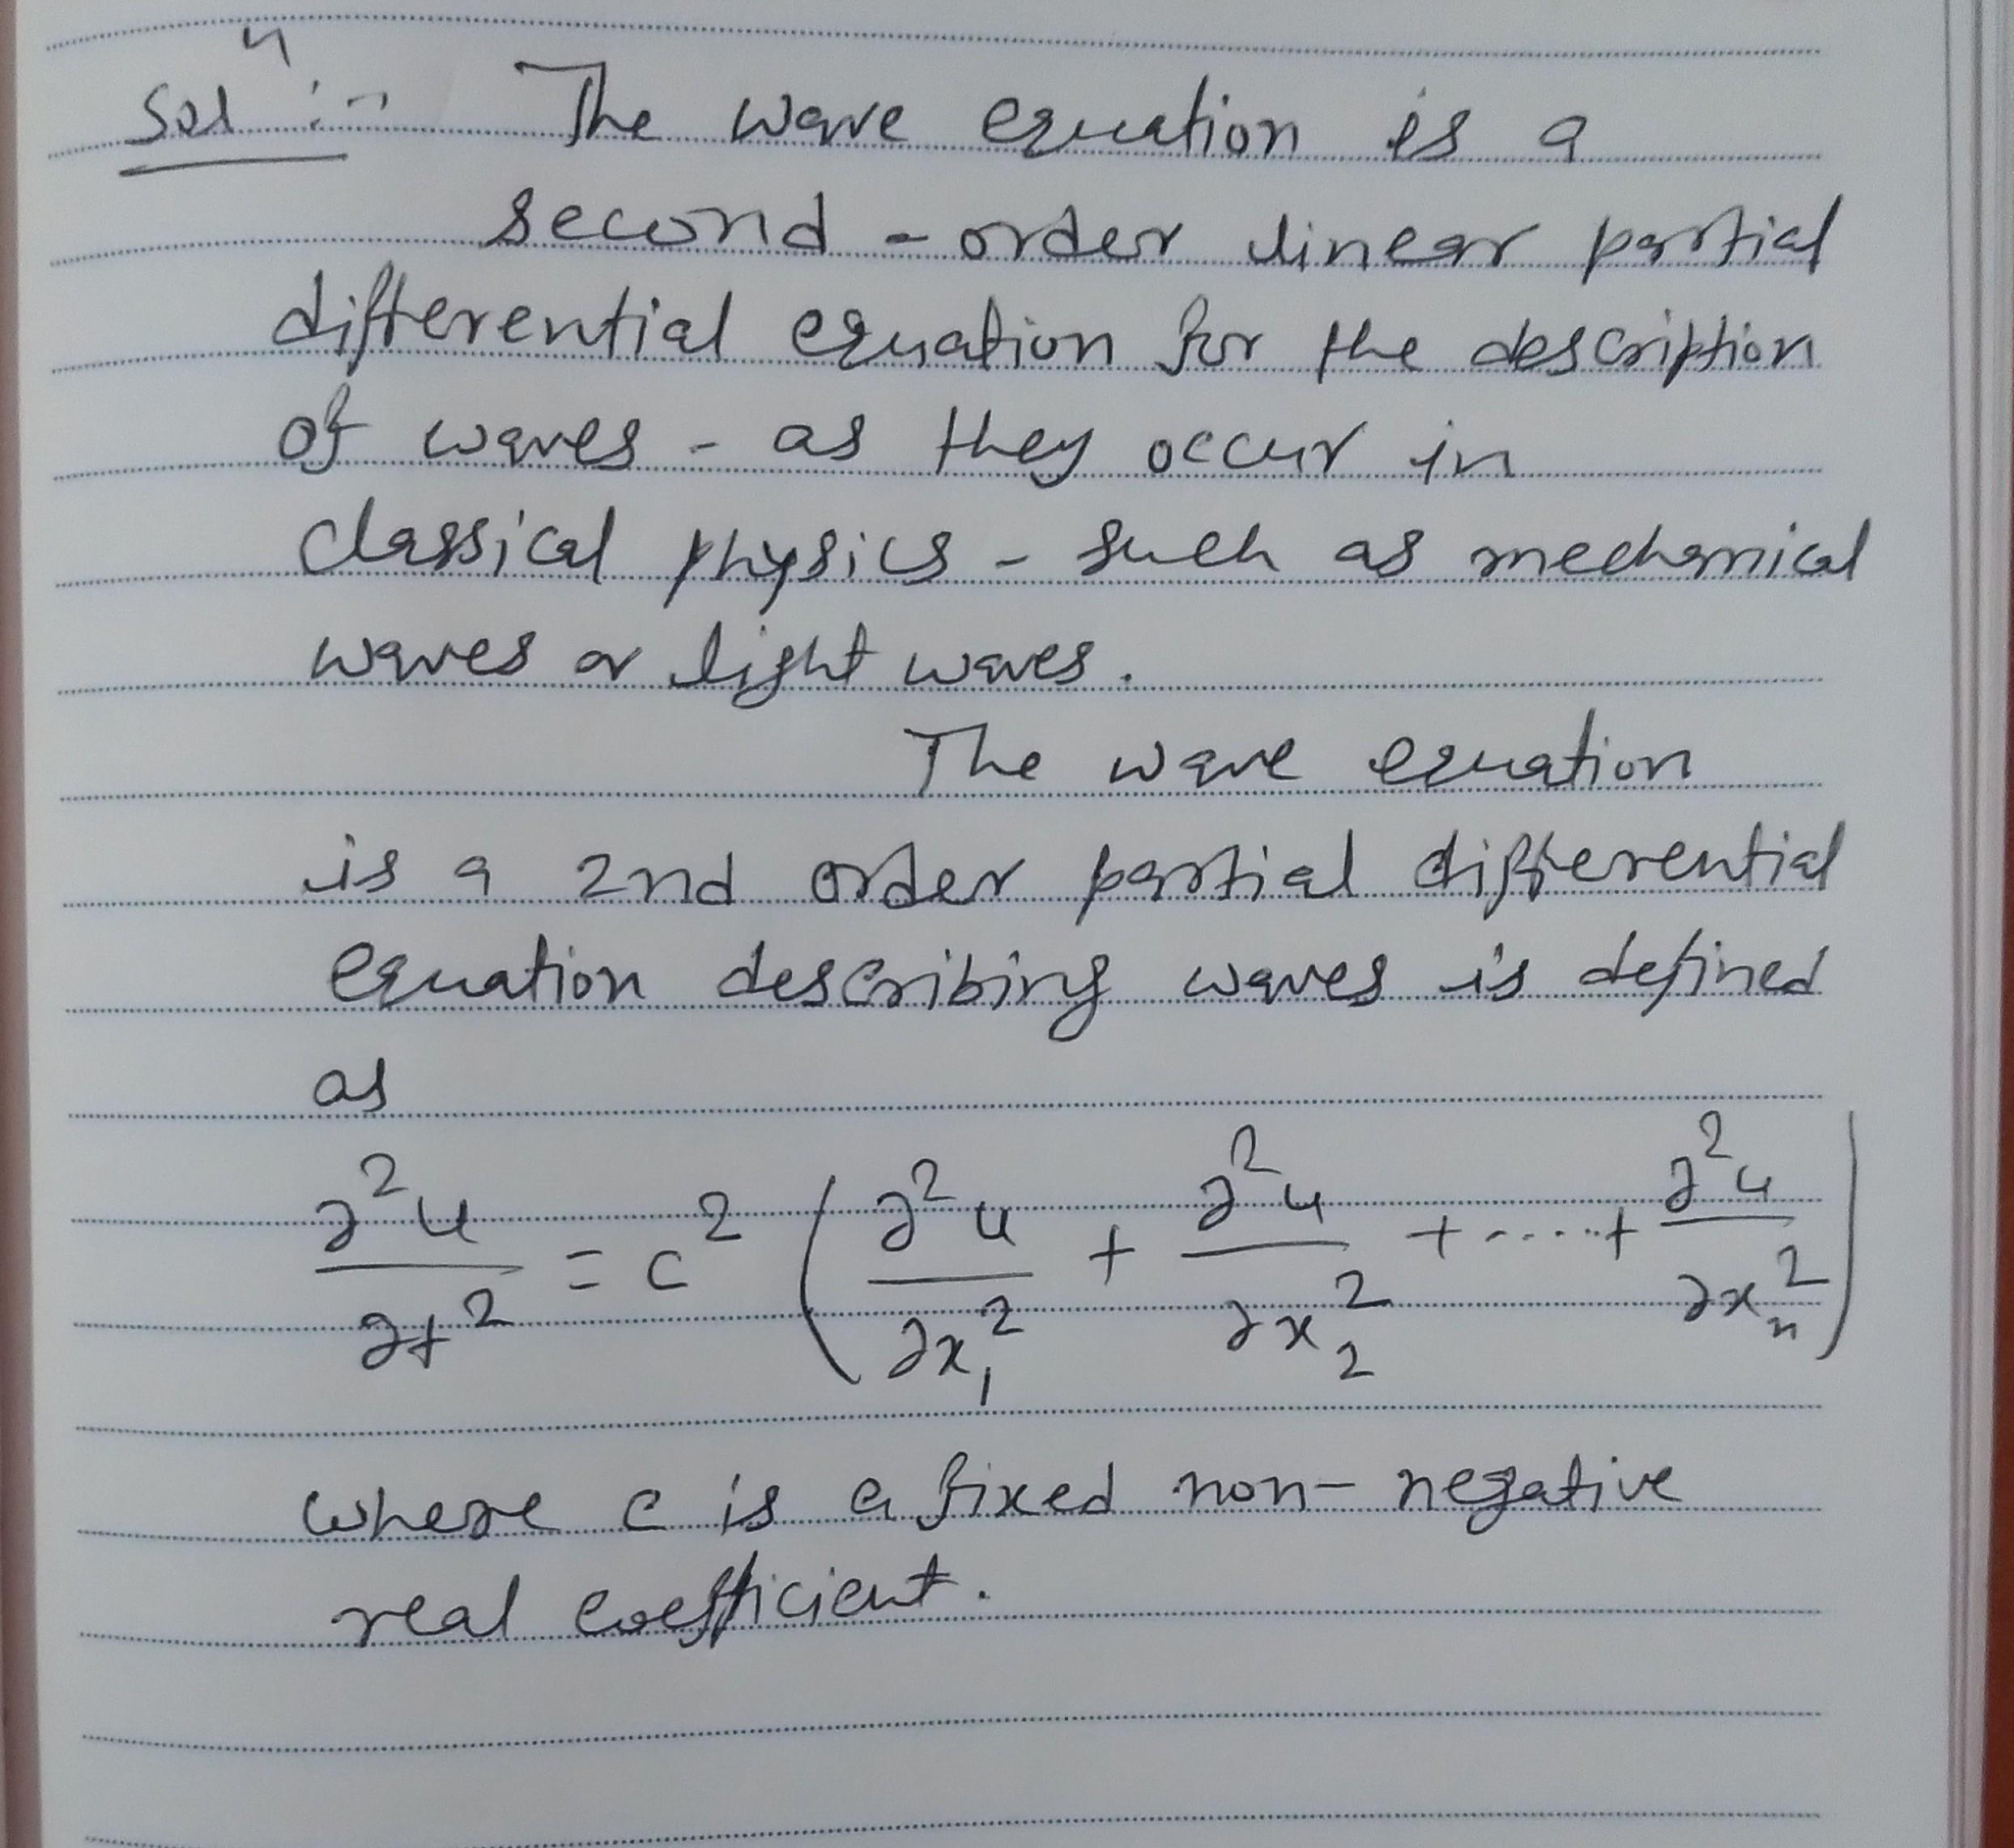 Solⁿ :- The wave equation is a
second - order linear partial
differential equation for the description
of waves - as they occur in
classical physics - such as mechanical
waves or light waves.
The wave equation
is a 2nd order partial differential
equation describing waves is defined
as
∂²u/∂t² = c² (∂²u/∂x₁² + ∂²u/∂x₂² + ..... + ∂²u/∂xₙ²)
where c is a fixed non- negative
real coefficient.